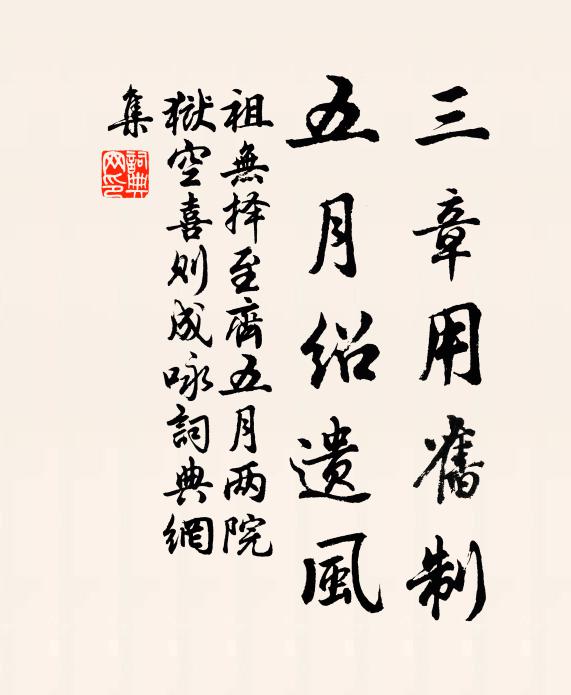 三章用舊制
五月紹遺風
祖無择至齊五月两院
獄空喜则成咏詞典網
集
詞典
网印